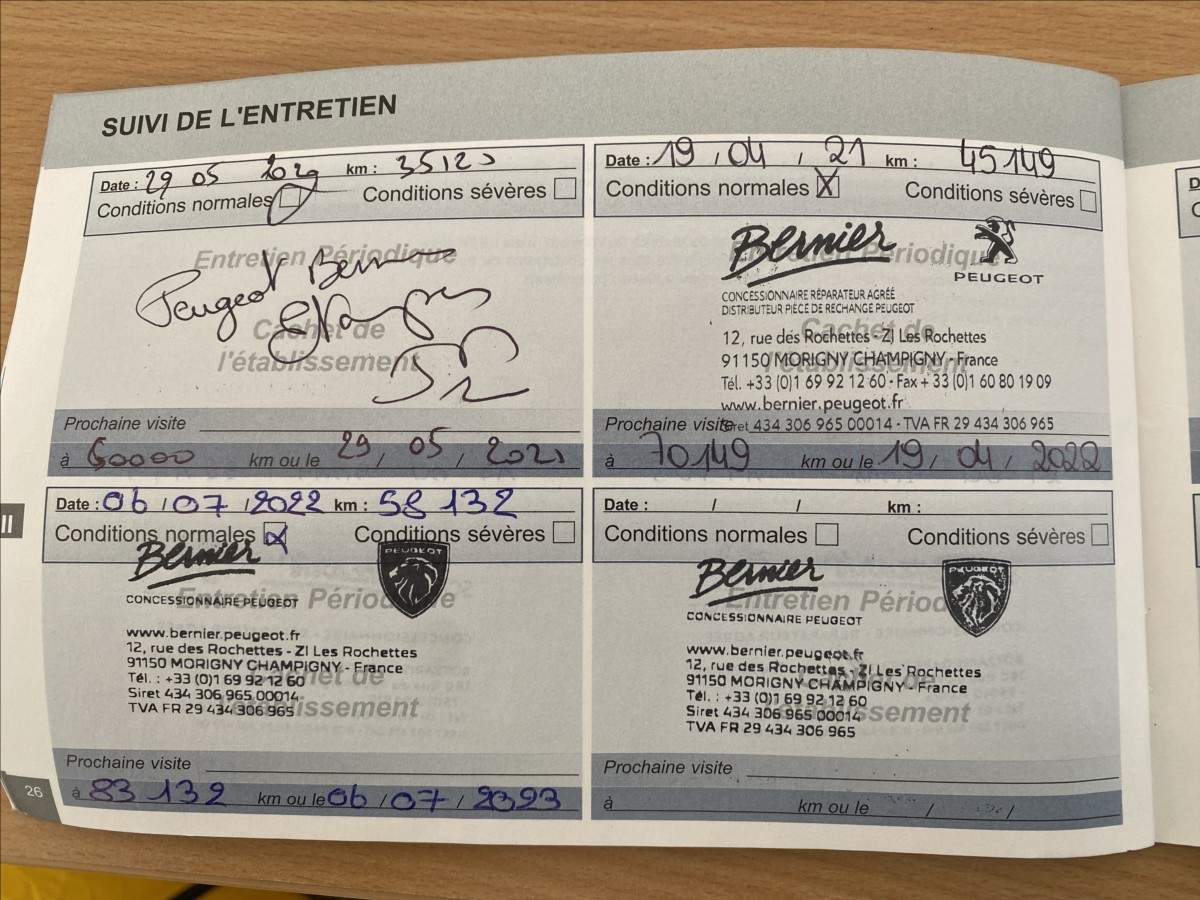 SUIVI DE L'ENTRETIEN
Date : 29 05 km : 3512
Conditions normales Conditions sévères
Entretien Périodique
Peugeot
Cachet de
Etampes
l'établissement
Prochaine visite
à 60000 km ou le 29 / 05 / 2021
Date : 19 / 04 / 21 km : 45149
Conditions normales X Conditions sévères
Bernier
Entretien Périodique
PEUGEOT
CONCESSIONNAIRE RÉPARATEUR AGRÉÉ
DISTRIBUTEUR PIÈCE DE RECHANGE PEUGEOT
Cachet de
12, rue des Rochettes - ZI Les Rochettes
l'établissement
91150 MORIGNY CHAMPIGNY - France
Tél. +33 (0)1 69 92 12 60 - Fax + 33 (0)1 60 80 19 09
www.bernier.peugeot.fr
Prochaine visite
Siret 434 306 965 00014 - TVA FR 29 434 306 965
à 70149 km ou le 19 / 04 / 2022
II
Date : 06 / 07 / 2022 km : 58 132
Conditions normales X Conditions sévères
Bernier
PEUGEOT
CONCESSIONNAIRE PEUGEOT
Entretien Périodique
www.bernier.peugeot.fr
12, rue des Rochettes - ZI Les Rochettes
91150 MORIGNY CHAMPIGNY - France
Tél. : +33 (0)1 69 92 12 60
Cachet de
Siret 434 306 965 00014
TVA FR 29 434 306 965
l'établissement
Prochaine visite
à 83 132 km ou le 06 / 07 / 2023
26
Date : / / km :
Conditions normales Conditions sévères
Bernier
PEUGEOT
Entretien Périodique
CONCESSIONNAIRE PEUGEOT
www.bernier.peugeot.fr
12, rue des Rochettes - ZI Les Rochettes
91150 MORIGNY CHAMPIGNY - France
Cachet de
Tél. : +33 (0)1 69 92 12 60
Siret 434 306 965 00014
l'établissement
TVA FR 29 434 306 965
Prochaine visite
à km ou le / /